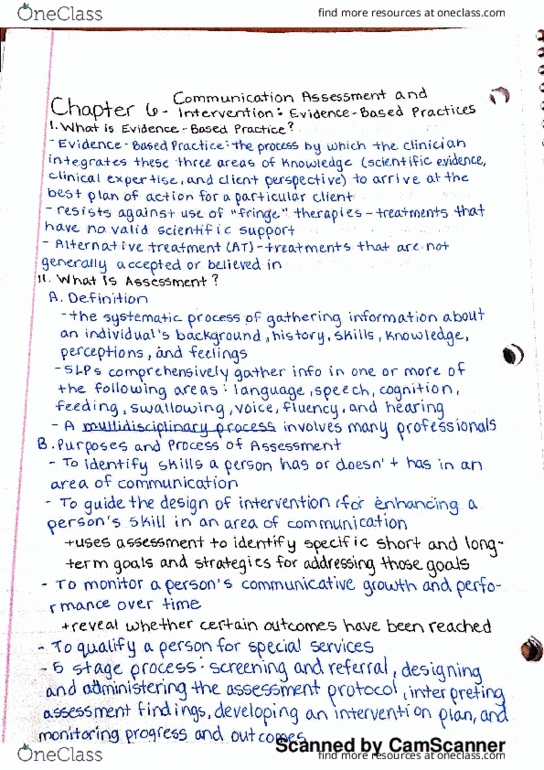 OneClass
find more resources at oneclass.com
Communication Assessment and
Chapter 6 - Intervention: Evidence-Based Practices
I. What is Evidence-Based Practice?
- Evidence-Based Practice: the process by which the clinician
integrates these three areas of knowledge (scientific evidence,
clinical expertise, and client perspective) to arrive at the
best plan of action for a particular client
- resists against use of "fringe" therapies - treatments that
have no valid scientific support
- Alternative treatment (AT) - treatments that are not
generally accepted or believed in
II. What is Assessment?
A. Definition
- the systematic process of gathering information about
an individual's background, history, skills, knowledge,
perceptions, and feelings
- SLPs comprehensively gather info in one or more of
the following areas: language, speech, cognition,
feeding, swallowing, voice, fluency, and hearing
- A multidisciplinary process involves many professionals
B. Purposes and Process of Assessment
- To identify skills a person has or doesn't has in an
area of communication
- To guide the design of intervention for enhancing a
person's skill in an area of communication
+uses assessment to identify specific short and long-
term goals and strategies for addressing those goals
- To monitor a person's communicative growth and perfo-
rmance over time
+reveal whether certain outcomes have been reached
- To qualify a person for special services
- 5 stage process: screening and referral, designing
and administering the assessment protocol, interpreting
assessment findings, developing an intervention plan, and
monitoring progress and outcomes
Scanned by CamScanner
OneClass
find more resources at oneclass.com